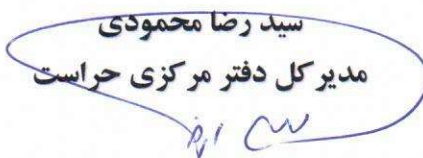 سید رضا محمودی
مدیر کل دفتر مرکزی حراست